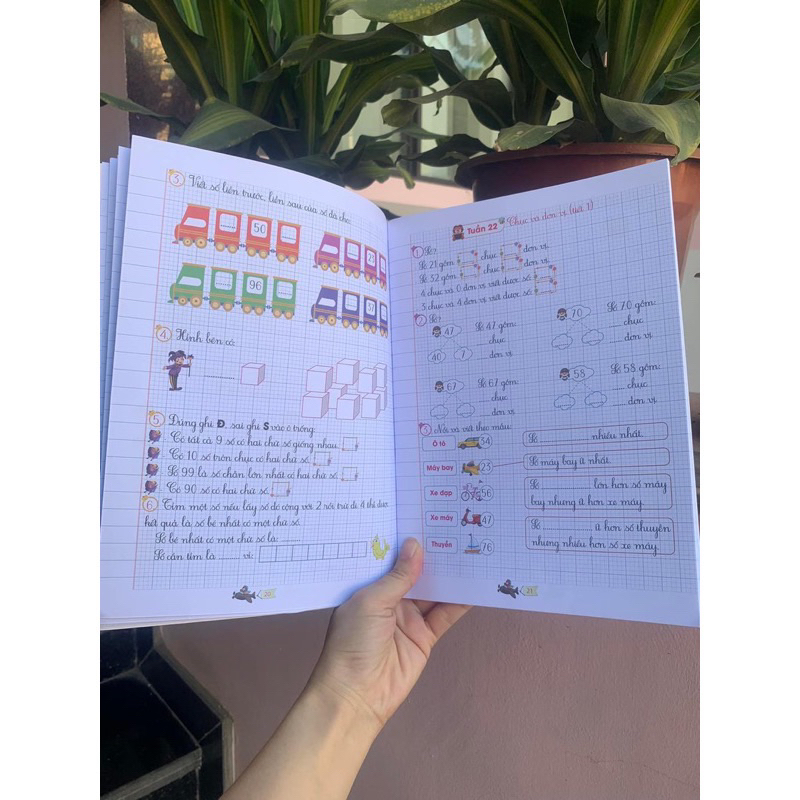 3 Viết số liền trước, liền sau của số đã cho:
50
23
96
67
4 Hình bên có:
.............
5 Đúng ghi Đ, sai ghi S vào ô trống:
Có tất cả 9 số có hai chữ số giống nhau.
Có 10 số tròn chục có hai chữ số.
Số 99 là số chẵn lớn nhất có hai chữ số.
Có 90 số có hai chữ số.
6 Tìm một số nếu lấy số đó cộng với 2 rồi trừ đi 4 thì được
kết quả là số bé nhất có một chữ số.
Số bé nhất có một chữ số là: .........
Số cần tìm là ........ vì:
20
Tuần 22 Chục và đơn vị (tiết 1)
1 Số?
Số 21 gồm chục đơn vị.
Số 32 gồm chục đơn vị.
4 chục và 0 đơn vị viết được số
3 chục và 4 đơn vị viết được số
2 Số?
47 Số 47 gồm:
.... chục
40 7 .... đơn vị
70 Số 70 gồm:
.... chục
.... đơn vị
67 Số 67 gồm:
.... chục
.... đơn vị
58 Số 58 gồm:
.... chục
.... đơn vị
3 Nối và viết theo mẫu:
Ô tô 54
Máy bay 25
Xe đạp 56
Xe máy 47
Thuyền 76
Số ............ nhiều nhất.
Số máy bay ít nhất.
Số ............ lớn hơn số máy
bay nhưng ít hơn xe máy.
Số ............ ít hơn số thuyền
nhưng nhiều hơn số xe máy.
21